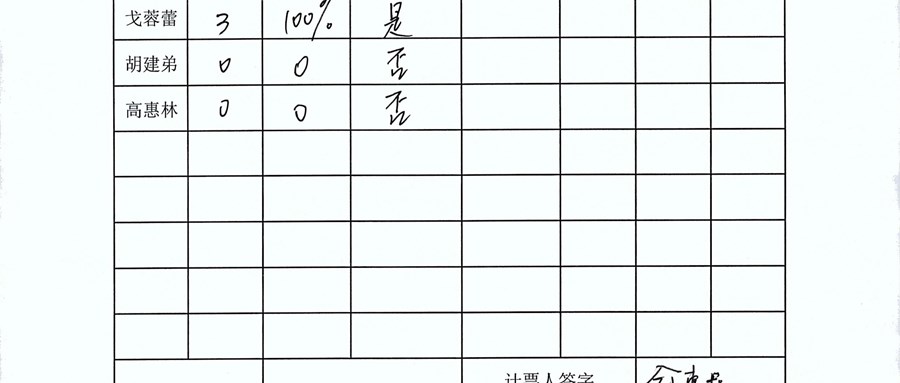 戈蓉蕾 3 100% 是
胡建弟 0 0 否
高惠林 0 0 否
计票人签字